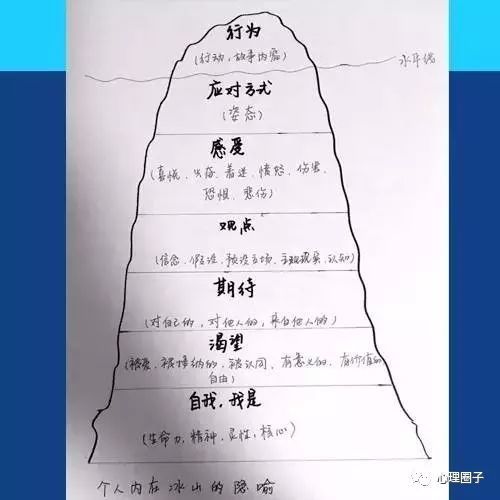 行为
(行动,故事内容)
水平线
应对方式
(姿态)
感受
(喜悦、兴奋、着迷、愤怒、伤害、
恐惧、悲伤)
观点
(信念、假设、预设立场、主观现实、认知)
期待
(对自己的,对他人的,来自他人的)
渴望
(被爱,被接纳的,被认同、有意义的、有价值的
自由)
自我,我是
(生命力,精神,灵性,核心)
个人内在冰山的隐喻
心理圈子